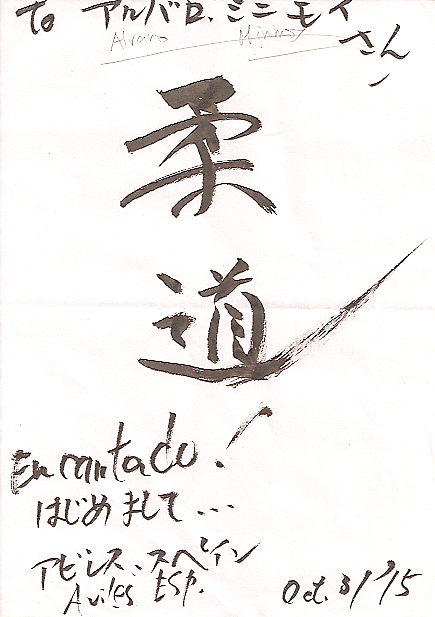 to アルバロ.ミニモイ
Alvaro
さん
柔
道
Encantado!
はじめまして...
アビレス、スペイン
Aviles ESP.
Oct. 31 '15